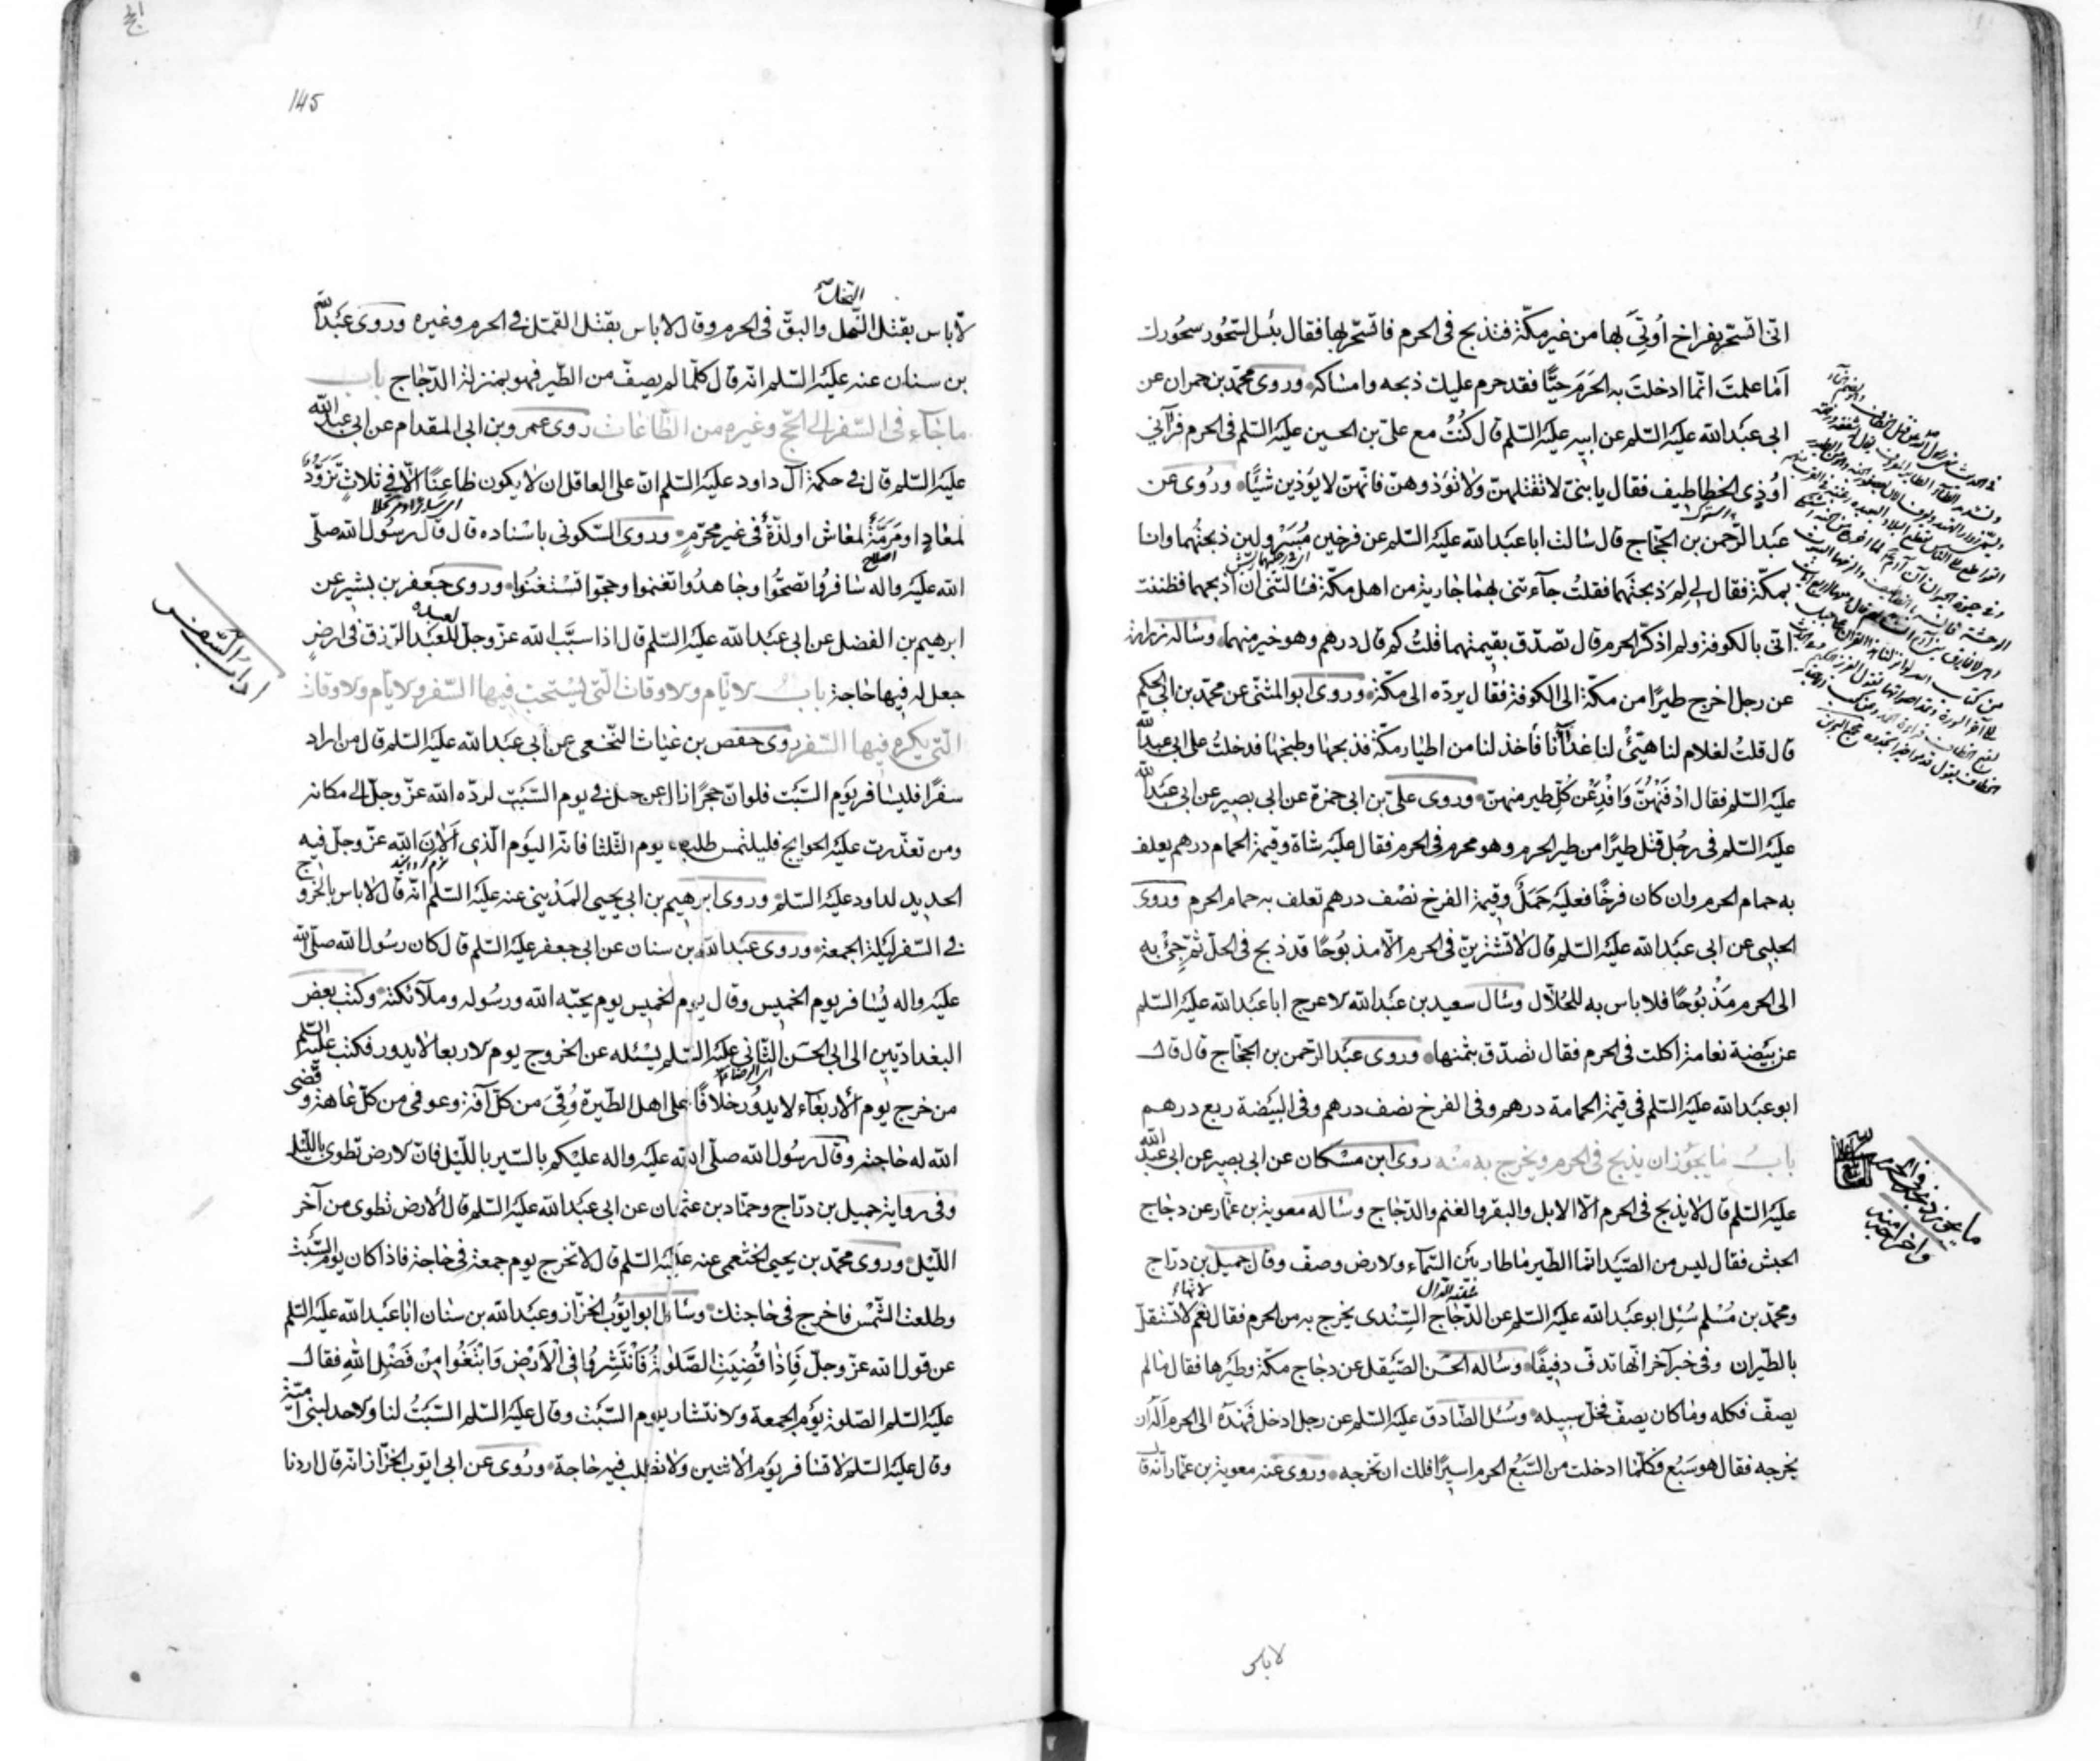 انى اتسحّر بفراخ أُوتِيَ بها من غير مكّة فتذبح فى الحرم فاتسحّر بها فقال بئس السّحُور سحُورك
أمَا علمتَ انّ ما ادخلتَ به الحَرَمَ حيًّا فقد حرم عليك ذبحه وامساكه وروى محمّد بن حمران عن
ابى عبد الله عليه السّلم عن ابيه عليه السّلم قال كُنْتُ مع علىّ بن الحسين عليه السّلم فى الحرم فرآنى
اُوذِى الخطاطيف فقال يا بنىّ لا تقتلهنّ ولا تؤذوهنّ فانّهنّ لا يؤذين شيئًا وروى عن
عبد الرّحمن بن الحجّاج قال سالت ابا عبد الله عليه السّلم عن فرخين مُسَرْولين ذبحتُهما وانا
بمكّة فقال لى لِمَ ذبحتَهما فقلتُ جآءتنى بهما جارية من اهل مكّة فسالتنى ان اذبحهما فظننت
انّى بالكوفة ولم اذكر الحرم قال تصدّق بقيمتهما قلتُ كم قال درهم وهو خير منهما وساله زرارة
عن رجل اخرج طيرًا من مكّة الى الكوفة فقال يردّه الى مكّة وروى ابو المثنّى عن محمّد بن ابى الحكم
قال قلتُ لغلام لنا هيّئْ لنا غدآءنا فأخذ لنا من اطيار مكّة فذبحها وطبخها فدخلتُ على ابى عبد الله
عليه السّلم فقال ادفنْهُنّ وَافْدِ عن كُلّ طير منهنّ وروى علىّ بن ابى حمزة عن ابى بصير عن ابى عبد الله
عليه السّلم فى رجُل قتل طيرًا من طير الحرم وهو محرم فى الحرم فقال عليه شاة وقيمة الحمام درهم يعلف
به حمام الحرم وان كان فرخًا فعليه حَمَلٌ وقيمة الفرخ نصْف درهم تعلف به حمام الحرم وروى
الحلبى عن ابى عبد الله عليه السّلم قال لا تشترينّ فى الحرم الّا مذبُوحًا قد ذبح فى الحلّ ثمّ جِئْ به
الى الحرم مَذْبُوحًا فلا باس به للحُلّال وسال سعيد بن عبد الله الاعرج ابا عبد الله عليه السّلم
عن بَيْضة نعامة اكلت فى الحرم فقال تصدّق بثمنها وروى عبد الرّحمن بن الحجّاج قال قال
ابو عبد الله عليه السّلم فى قيمة الحمامة درهم وفى الفرخ نصف درهم وفى البيضة ربع درهم
بابُ ما يجُوز ان يذبح فى الحرم ويخرج به منْه روى ابن مسْكان عن ابى بصير عن ابى عبد الله
عليه السّلم قال لا يذبح فى الحرم الّا الابل والبقر والغنم والدّجاج وساله معوية بن عمّار عن دجاج
الحبش فقال ليس من الصّيد انّما الطّير ما طار بين السّمآء والارض وصفّ وقال جميل بن درّاج
ومحمّد بن مُسْلم سُئِل ابو عبد الله عليه السّلم عن الدّجاج السِّنْدى يخرج به من الحرم فقال نعم لا تستقلّ
بالطّيران وفى خبر آخر انّها تدفّ دفيفًا وساله الحسن الصّيقل عن دجاج مكّة وطيرها فقال ما لم
يصفّ فكله وما كان يصفّ فخلّ سبيله وسُئل الصّادق عليه السّلم عن رجل ادخل فهْدَه الى الحرم أله ان
يخرجه فقال هو سَبُع فكلّما ادخلت من السّبُع الحرم اسيرًا فلك ان تخرجه وروى عنه معوية بن عمّار انّه قال
لا باس
ما يجوز ذبحه فى الحرم
واخراجه منه
145
النّخل
لا باس بقتل النّمل والبقّ فى الحرم وقال لا باس بقتل القمّل فى الحرم وغيره وروى عبد الله
بن سنان عنه عليه السّلم انّه قال كلّما لم يصفّ من الطّير فهو بمنزلة الدّجاج باب
ما جآء فى السّفر الى الحجّ وغيره من الطّاعات روى عمرو بن ابى المقدام عن ابى عبد الله
عليه السّلم قال فى حكمة آل داود عليه السّلم انّ على العاقل ان لا يكون ظاعنًا الّا فى ثلاثٍ تَزَوُّدٌ
لمعادٍ او مَرَمَّةٌ لمعاش او لذّةٌ فى غير محرّمٍ وروى السّكونى باسْناده قال قال رسُول الله صلّى
الله عليه واله سَافرُوا تصحّوُا وجاهدُوا تغنموا وحجّوا تسْتغنُوا وروى جعفر بن بشير عن
ابرهيم بن الفضل عن ابى عبد الله عليه السّلم قال اذا سبَّب الله عزّ وجلّ للعبد الرّزق فى ارضٍ
جعل له فيها حاجة بابُ الايّام والاوقات الّتى يُسْتحبّ فيها السّفر والايّام والاوقات
الّتى يكره فيها السّفر روى حفص بن غياث النّخعى عن ابى عبد الله عليه السّلم قال من اراد
سفرًا فليسافر يوم السّبت فلو انّ حجرًا زال عن جبل فى يوم السّبت لردّه الله عزّ وجلّ الى مكانه
ومن تعذّرت عليه الحوايج فليلتمس طلبها يوم الثّلثا فانّه اليوم الّذى أَلَانَ الله عزّ وجلّ فيه
الحديد لداود عليه السّلم وروى ابرهيم بن ابى يحيى المَدْينى عنه عليه السّلم انّه قال لا باس بالخروج
فى السّفر ليلة الجمعة وروى عبد الله بن سنان عن ابى جعفر عليه السّلم قال كان رسُول الله صلّى الله
عليه واله يُسافر يوم الخميس وقال يوم الخميس يوم يحبّه الله ورسُوله وملآئكته وكتب بعض
البغداديّين الى ابى الحسَن الثّانى عليه السّلم يسْئله عن الخروج يوم الاربعا لا يدور فكتب عليه السّلم
من خرج يوم ألاربعآء لا يدوُر خلافًا على اهل الطّيرة وُقِىَ من كلّ آفة وعوفى من كلّ عاهة وقضى
الله له حاجته وقال رسُول الله صلّى الله عليه واله عليكم بالسّير باللّيل فانّ الارض تطوى باللّيل
وفى رواية جميل بن درّاج وحمّاد بن عثمان عن ابى عبد الله عليه السّلم قال ألارض تطوى من آخر
اللّيْل وروى محمّد بن يحيى الخثعمى عنه عليه السّلم قال لا تخرج يوم جمعة فى حاجة فاذا كان يوم السّبت
وطلعت الشّمْس فاخرج فى حاجتك وسال ابو ايّوب الخزّاز وعبد الله بن سنان ابا عبد الله عليه السّلم
عن قول الله عزّ وجلّ فَإِذَا قُضِيَتِ الصَّلوٰةُ فَانْتَشِرُوا فِى الْاَرْضِ وَابْتَغُوا مِنْ فَضْلِ اللهِ فقال
عليه السّلم الصّلوة يوم الجمعة والانتشار يوم السّبت وقال عليه السّلم السّبتُ لنا والاحد لبنى اميّة
وقال عليه السّلم لا تسافر يوم ألاثنين ولا تطلب فيه حاجة وروى عن ابى ايّوب الخزّاز انّه قال اردنا
اداب السّفر